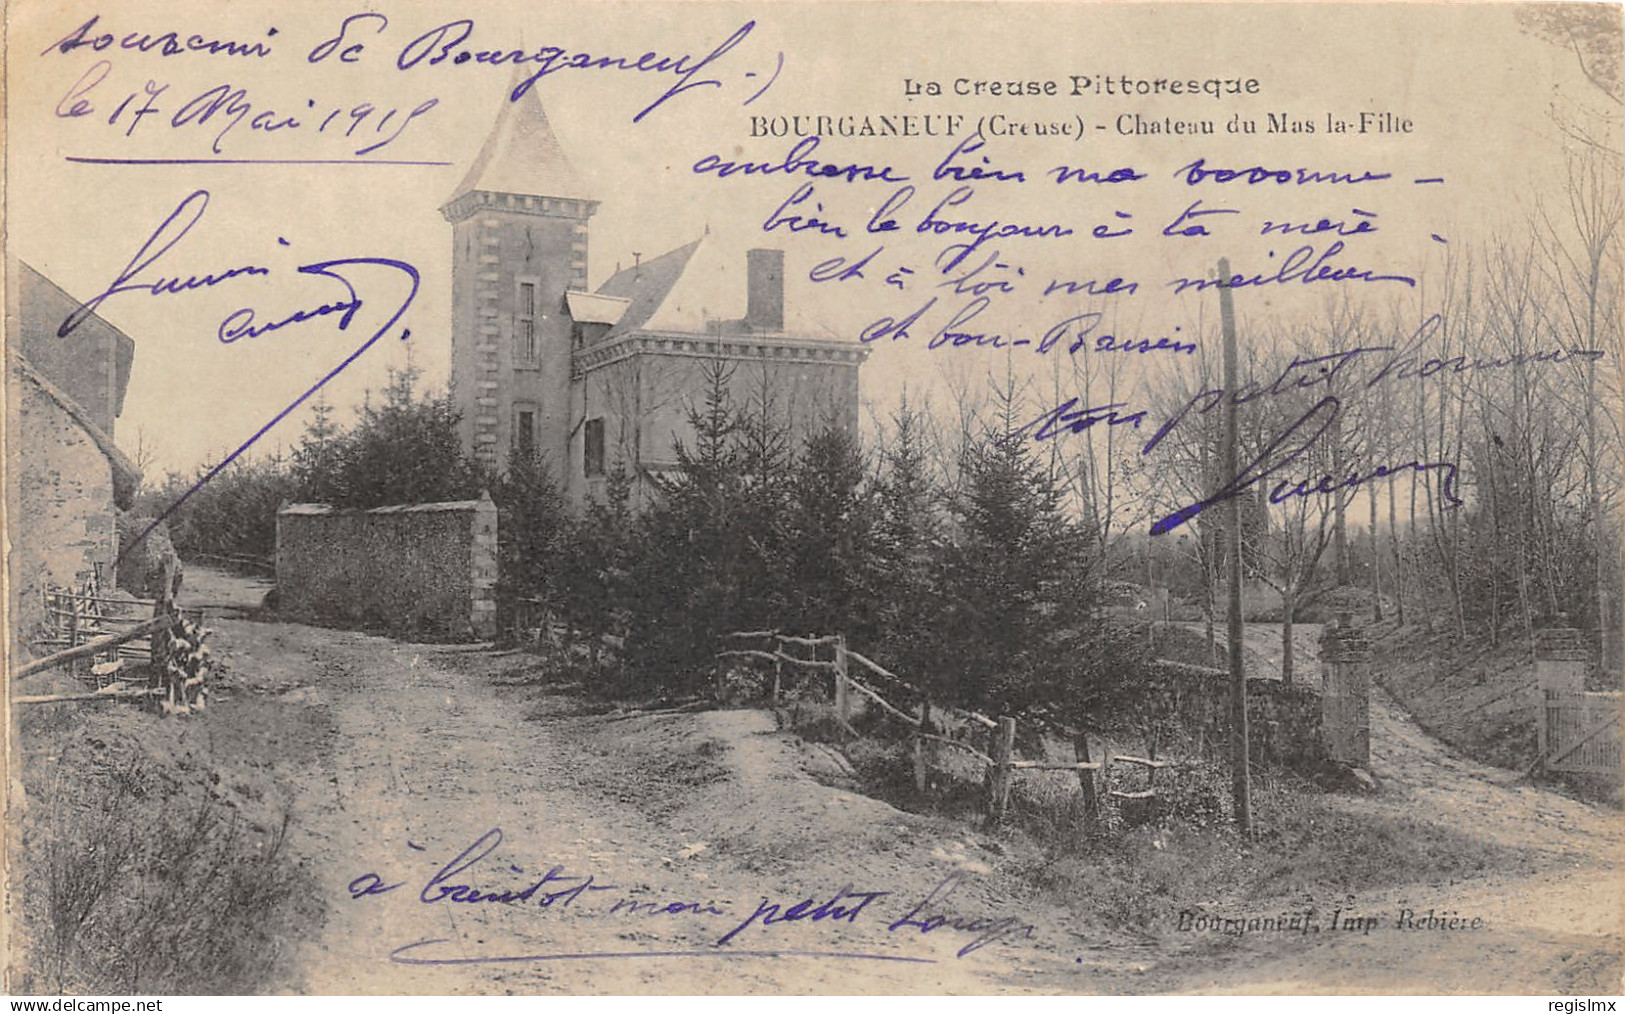 souvenir de Bourganeuf -)
le 17 Mai 1915
La Creuse Pittoresque
BOURGANEUF (Creuse) - Chateau du Mas la-Fille
embrasse bien ma
bien le bonjour à ta mère
et à toi mes meilleur
et bon - Baisers
ton petit homme
à bientôt mon petit Loup
Bourganeuf, Imp Rebière
www.delcampe.net
regislmx